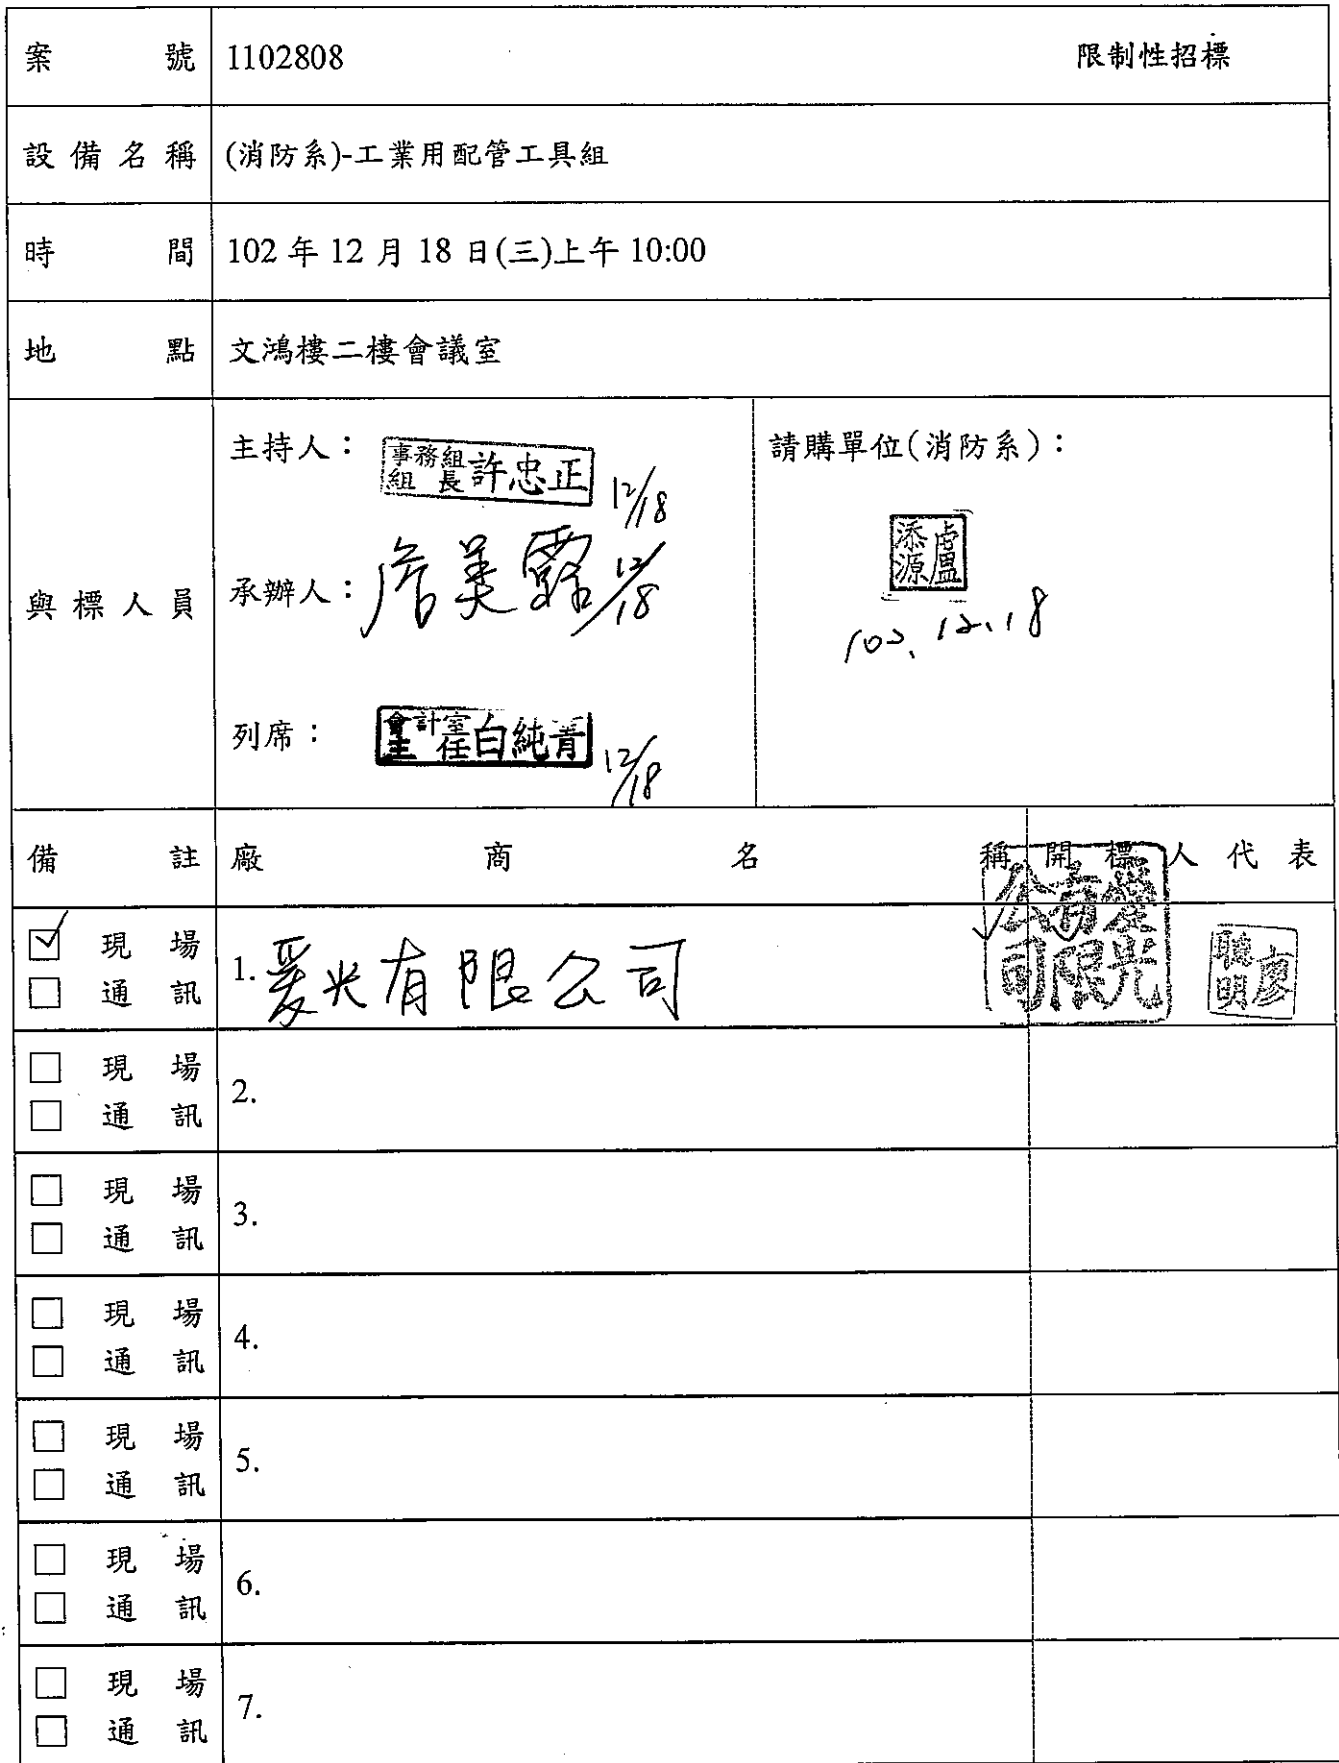 案號 1102808 限制性招標
設備名稱 (消防系)-工業用配管工具組
時間 102 年 12 月 18 日(三)上午 10:00
地點 文鴻樓二樓會議室
與標人員
主持人： 事務組組長 許忠正 12/18
承辦人： 詹美露 12/18
列席： 會計室主任 白純菁 12/18
請購單位(消防系)：
盧添源
102.12.18
備註 廠商名稱 開標人代表
☑ 現場
□ 通訊
1. 爰光有限公司 有限公司 廖聰明
□ 現場
□ 通訊
2.
□ 現場
□ 通訊
3.
□ 現場
□ 通訊
4.
□ 現場
□ 通訊
5.
□ 現場
□ 通訊
6.
□ 現場
□ 通訊
7.